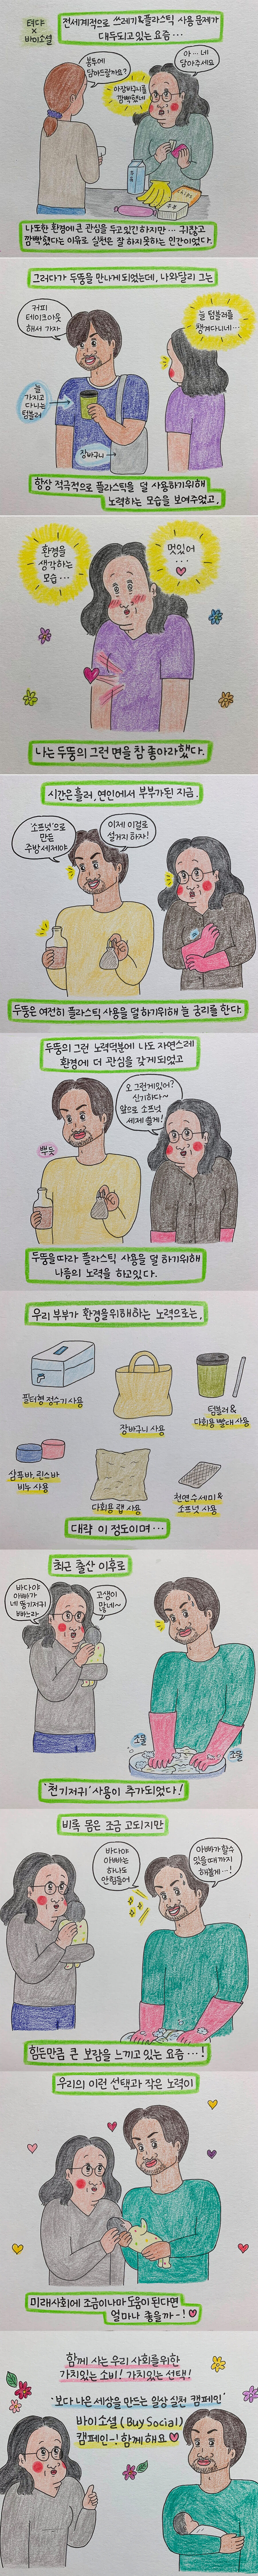 터댜
×
바이소셜
전세계적으로 쓰레기&플라스틱 사용 문제가
대두되고있는 요즘…
봉투에
담아드릴까요?
아장바구니를
깜빡했네
아…네
담아주세요
두부
나또한 환경에 큰 관심을 두고있긴 하지만… 귀찮고
깜빡했다는 이유로 실천은 잘 하지못하는 인간이었다.
그러다가 두뚱을 만나게 되었는데, 나와달리 그는
커피
테이크아웃
해서 가자
늘 텀블러를
챙겨다니네…
늘
가지고
다니는
텀블러
장바구니
항상 적극적으로 플라스틱을 덜 사용하기위해
노력하는 모습을 보여주었고,
환경을
생각하는
모습…
멋있어
…
나는 두뚱의 그런 면을 참 좋아라했다.
시간은 흘러, 연인에서 부부가 된 지금.
'소프넛'으로
만든
주방세제야
이제 이걸로
설거지 하자!
두뚱은 여전히 플라스틱 사용을 덜 하기위해 늘 궁리를 한다.
두뚱의 그런 노력덕분에 나도 자연스레
환경에 더 관심을 갖게 되었고
오 그런게 있어?
신기하다~
앞으로 소프넛
세제 쓸게!
뿌듯
두뚱을 따라 플라스틱 사용을 덜 하기위해
나름의 노력을 하고있다.
우리 부부가 환경을위해하는 노력으로는,
필터형 정수기 사용
장바구니 사용
텀블러 &
다회용 빨대 사용
샴푸바, 린스바
비누 사용
다회용 랩 사용
천연수세미 &
소프넛 사용
대략 이 정도이며…
최근 출산 이후로
바다야
아빠가
네 똥기저귀
빠신다
고생이
많네~
조물
조물
'천기저귀' 사용이 추가되었다!
비록 몸은 조금 고되지만
바다야
아빠는
하나도
안힘들어
아빠가 할수
있을 때까지
해볼게…!
힘든만큼 큰 보람을 느끼고 있는 요즘…!
우리의 이런 선택과 작은 노력이
미래사회에 조금이나마 도움이 된다면
얼마나 좋을까-!
함께 사는 우리 사회를위한
가치있는 소비! 가치있는 선택!
'보다 나은 세상을 만드는 일상 실천 캠페인'
바이소셜 (Buy Social)
캠페인-! 함께해요